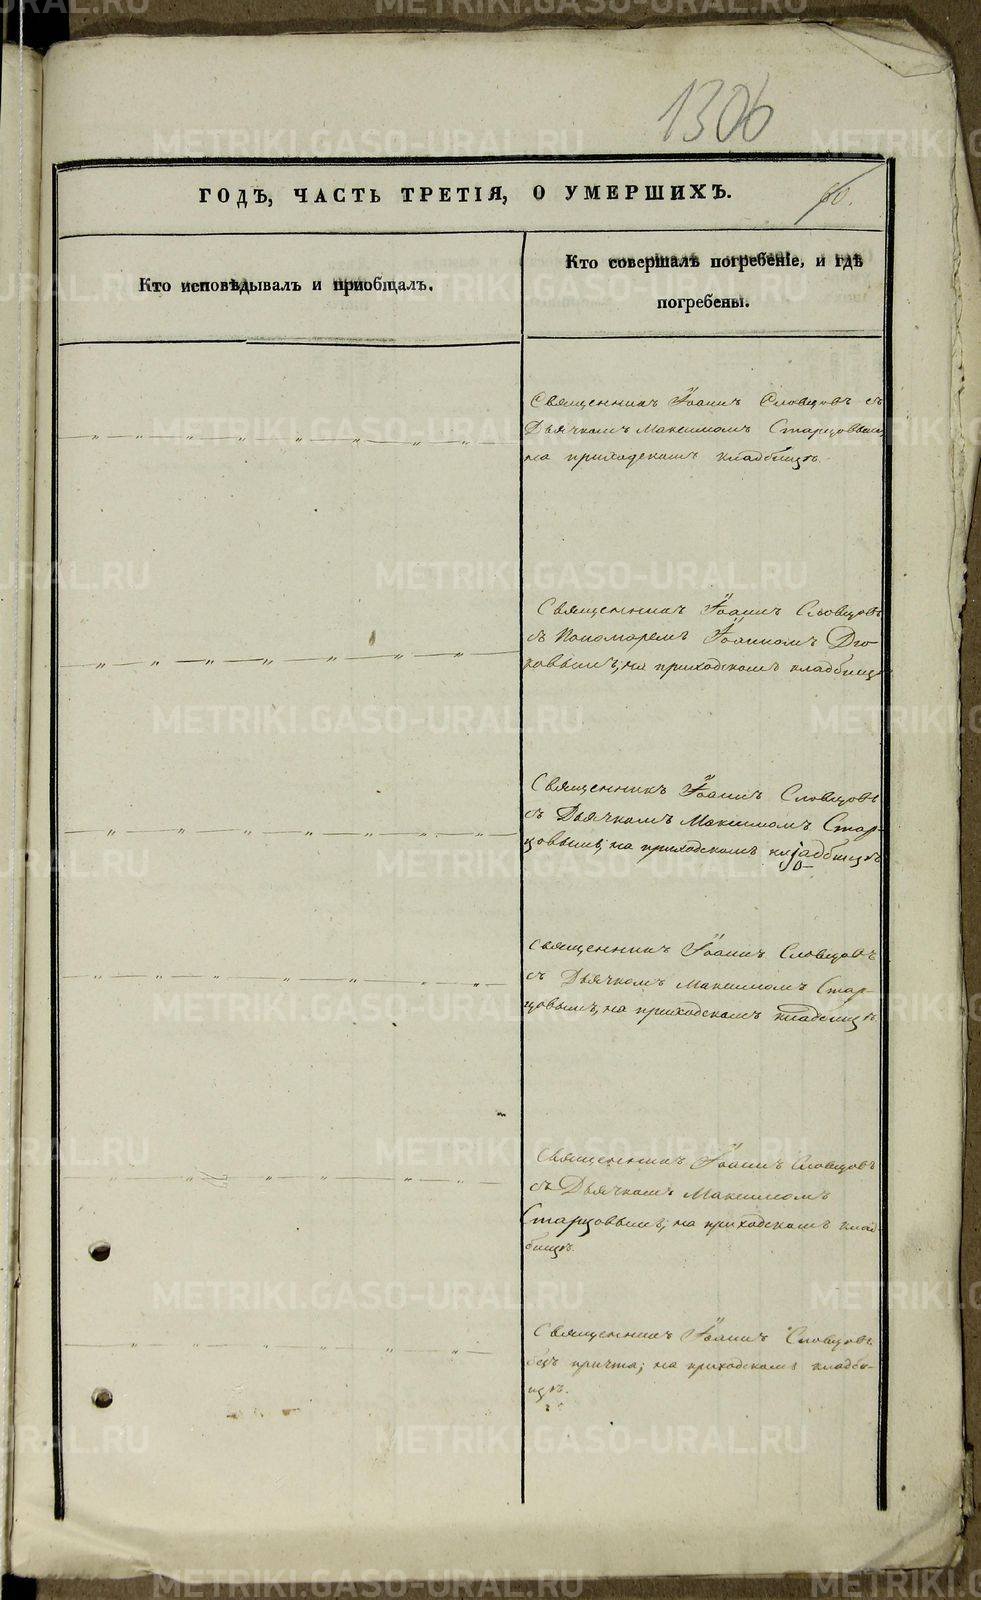 1306
ГОДЪ, ЧАСТЬ ТРЕТІЯ, О УМЕРШИХЪ.
60.
Кто исповѣдывалъ и пріобщалъ.
Кто совершалъ погребеніе, и гдѣ
погребены.
Священникъ Іоаннъ Словцовъ съ
Дьячкомъ Максимомъ Старцовымъ,
на приходскомъ кладбищѣ.
Священникъ Іоаннъ Словцовъ
съ Пономаремъ Іоанномъ Дю-
ковымъ; на приходскомъ кладбищѣ
Священникъ Іоаннъ Словцовъ
съ Дьячкомъ Максимомъ Стар-
цовымъ; на приходскомъ кладбищѣ
Священникъ Іоаннъ Словцовъ
съ Дьячкомъ Максимомъ Стар-
цовымъ, на приходскомъ кладбищѣ.
Священникъ Іоаннъ Словцовъ
съ Дьячкомъ Максимомъ
Старцовымъ; на приходскомъ клад-
бищѣ.
Священникъ Іоаннъ Словцовъ
безъ причта; на приходскомъ кладби-
щѣ.
METRIKI.GASO-URAL.RU